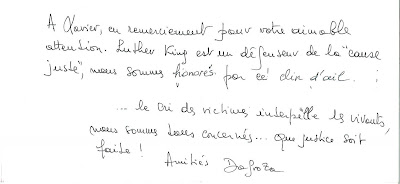 A Xavier, en remerciement pour votre aimable
attention. Luther King est un défenseur de la "cause
juste", nous sommes honorés par ce clin d'œil. :
... le cri des victimes interpelle les vivants,
nous sommes tous concernés... que justice soit
faite !
Amitiés Dafroza